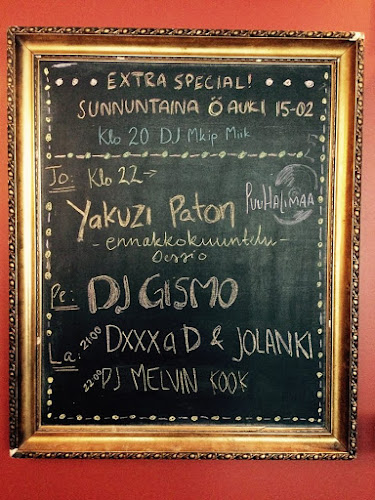 EXTRA SPECIAL!
SUNNUNTAINA Ö AUKI 15-02
Klo 20 DJ Mkip Miik
To: Klo 22→
Yakuzi Paton
PUUHALIMAA
-ennakkokuuntelu-
sessio
Pe: DJ GISMO
La: 21:00 DXXXa D & JOLANKI
22:00 DJ MELVIN KOOK